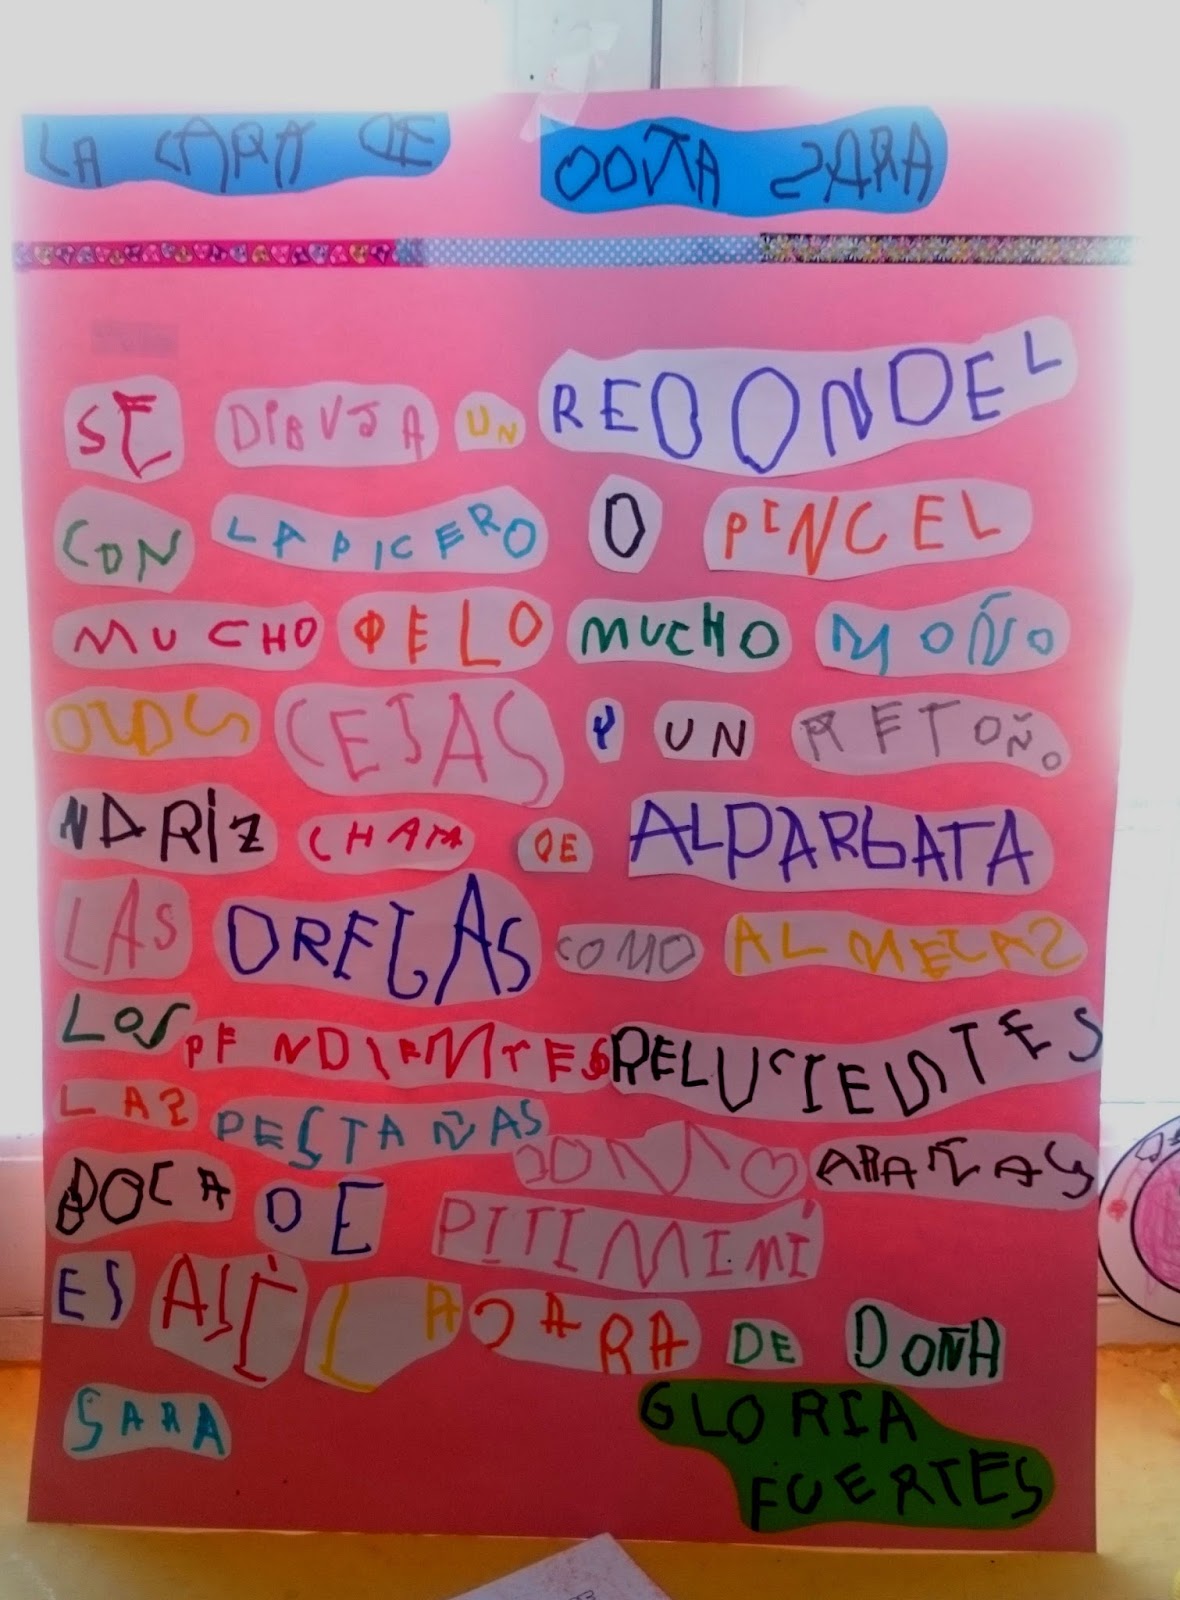 LA CARA DE DOÑA SARA
SE DIBUJA UN REDONDEL
CON LAPICERO O PINCEL
MUCHO PELO MUCHO MOÑO
OJOS CEJAS Y UN RETOÑO
NARIZ CHATA DE ALPARGATA
LAS OREJAS COMO ALMEJAS
LOS PENDIENTES RELUCIENTES
LAS PESTAÑAS COMO ARAÑAS
BOCA DE PITIMIMÍ
ES ASÍ LA CARA DE DOÑA
SARA
GLORIA
FUERTES